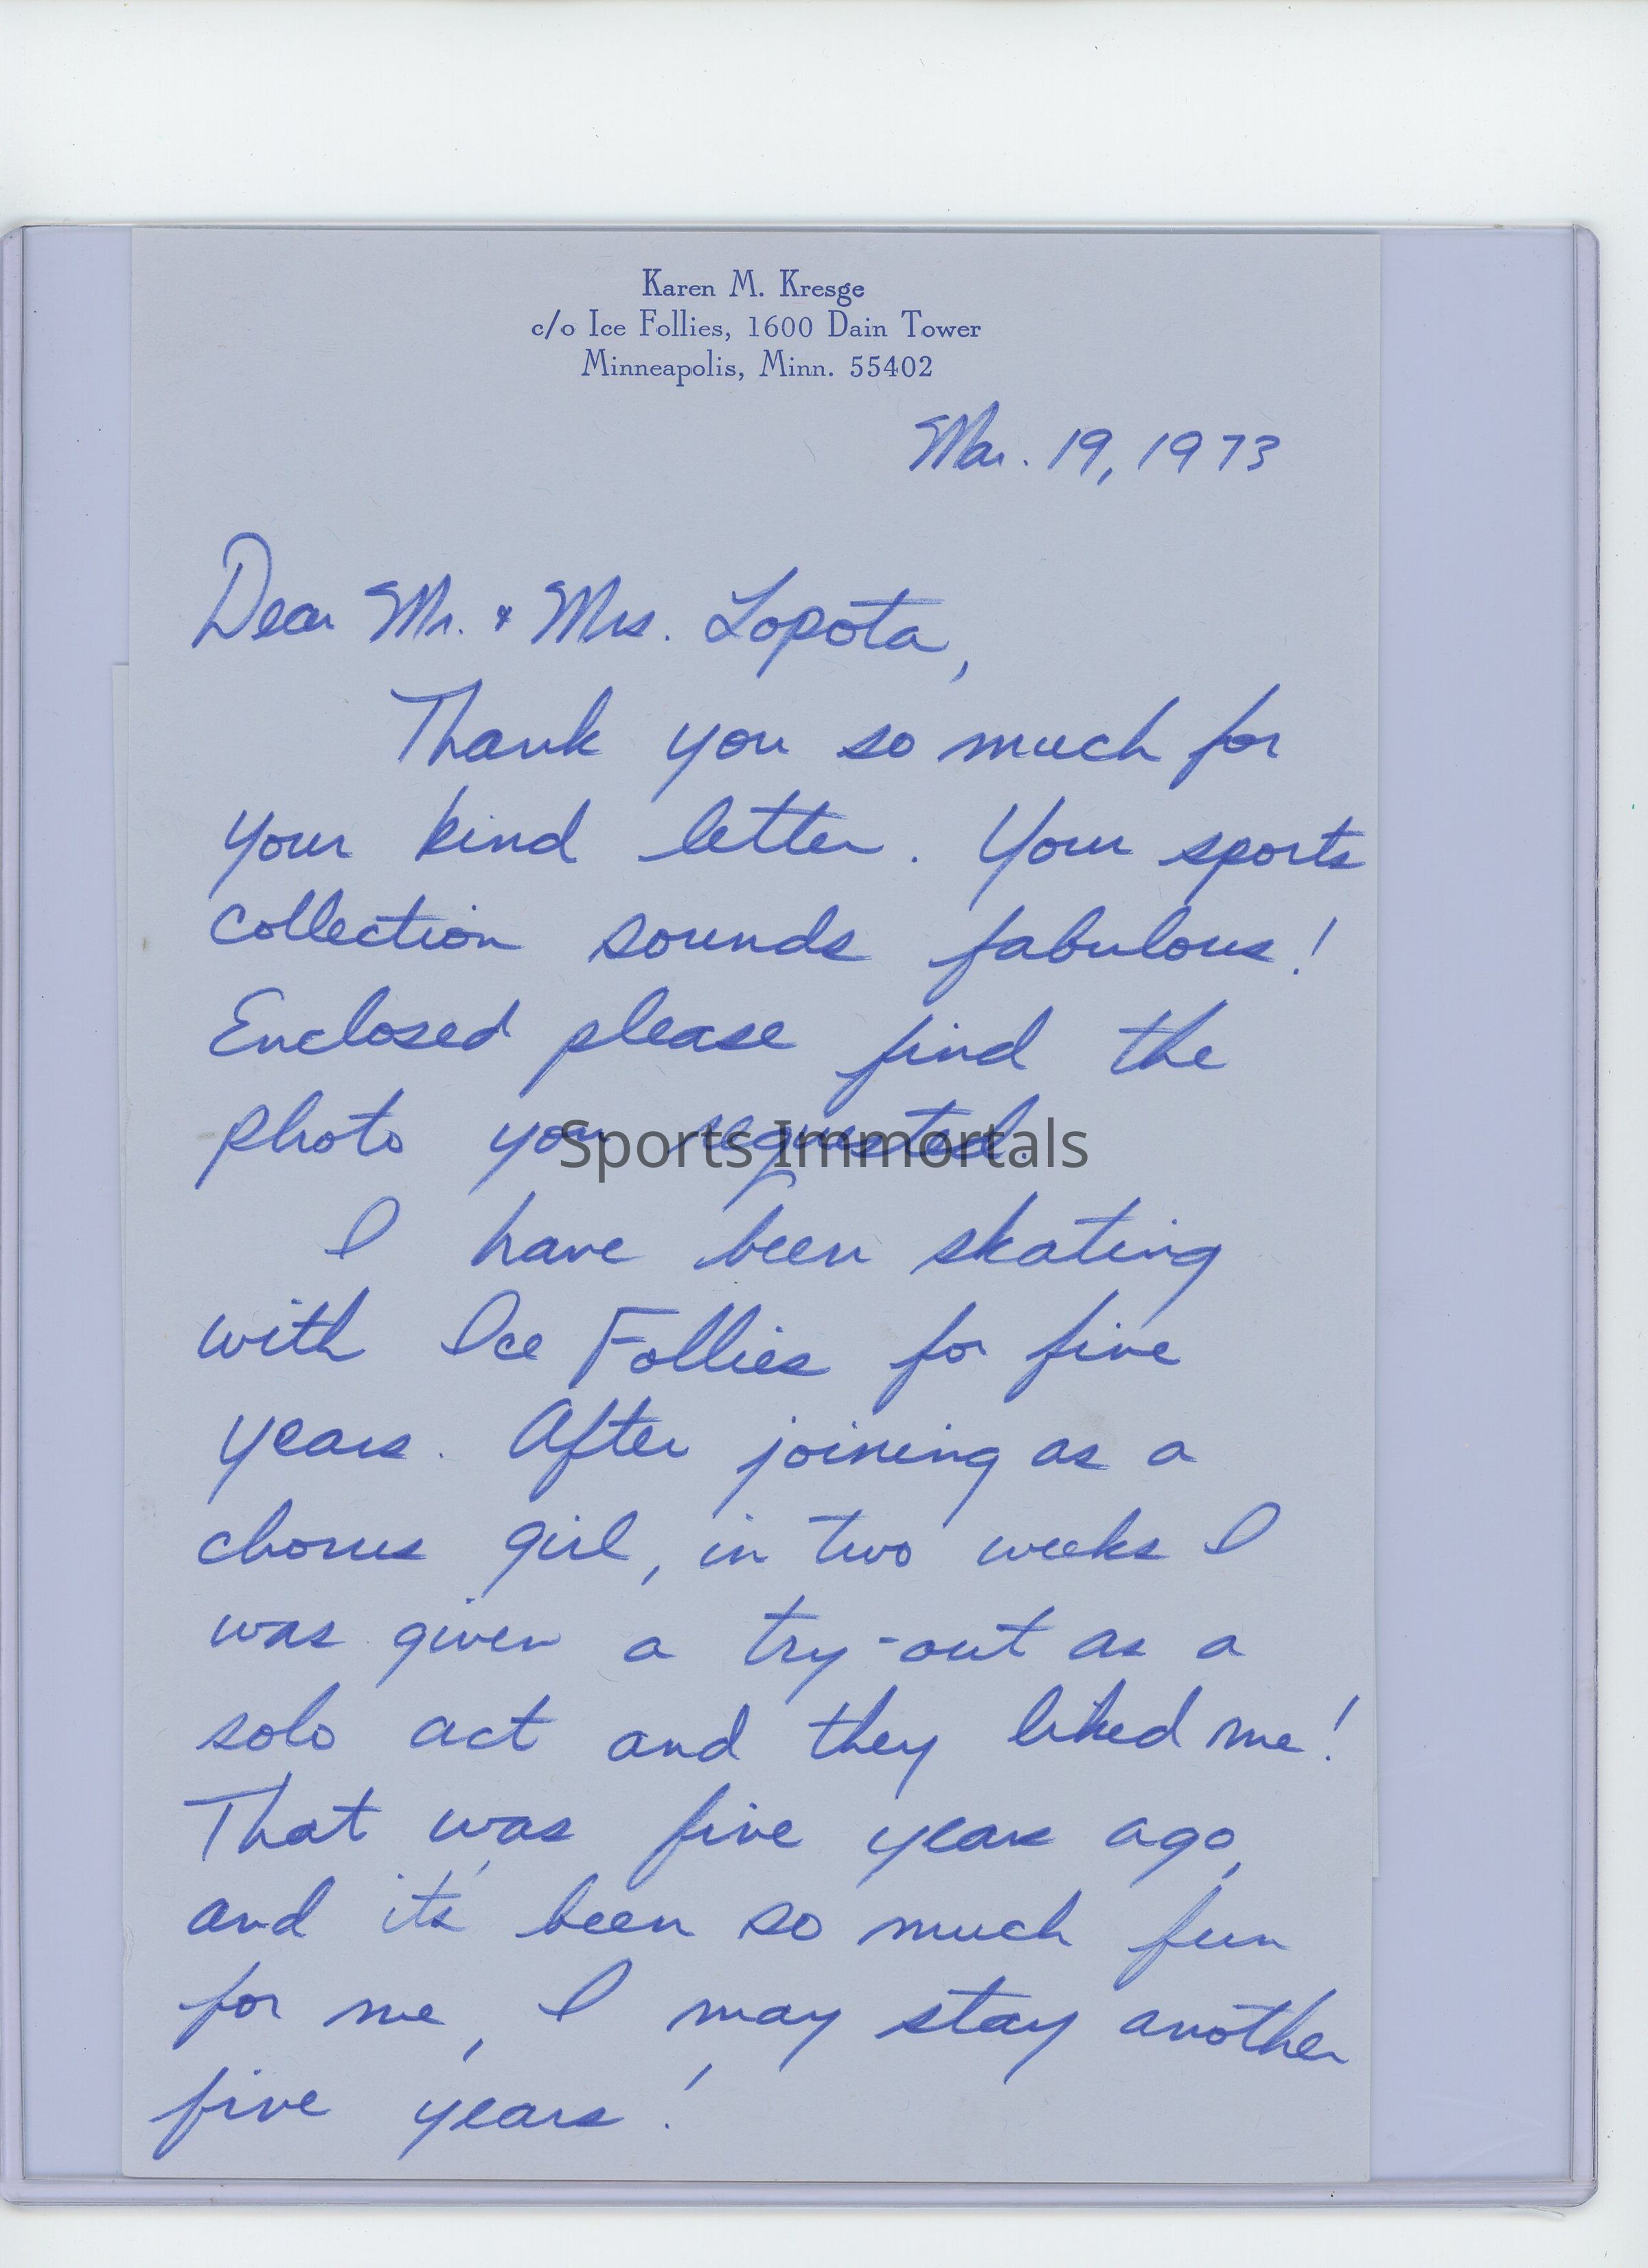 Karen M. Kresge
c/o Ice Follies, 1600 Dain Tower
Minneapolis, Minn. 55402
Mar. 19, 1973
Dear Mr. & Mrs. Lopota,
Thank you so much for
your kind letter. Your sports
collection sounds fabulous!
Enclosed please find the
photo you requested.
Sports Immortals
I have been skating
with Ice Follies for five
years. After joining as a
chorus girl, in two weeks I
was given a try-out as a
solo act and they liked me!
That was five years ago,
and it's been so much fun
for me, I may stay another
five years!